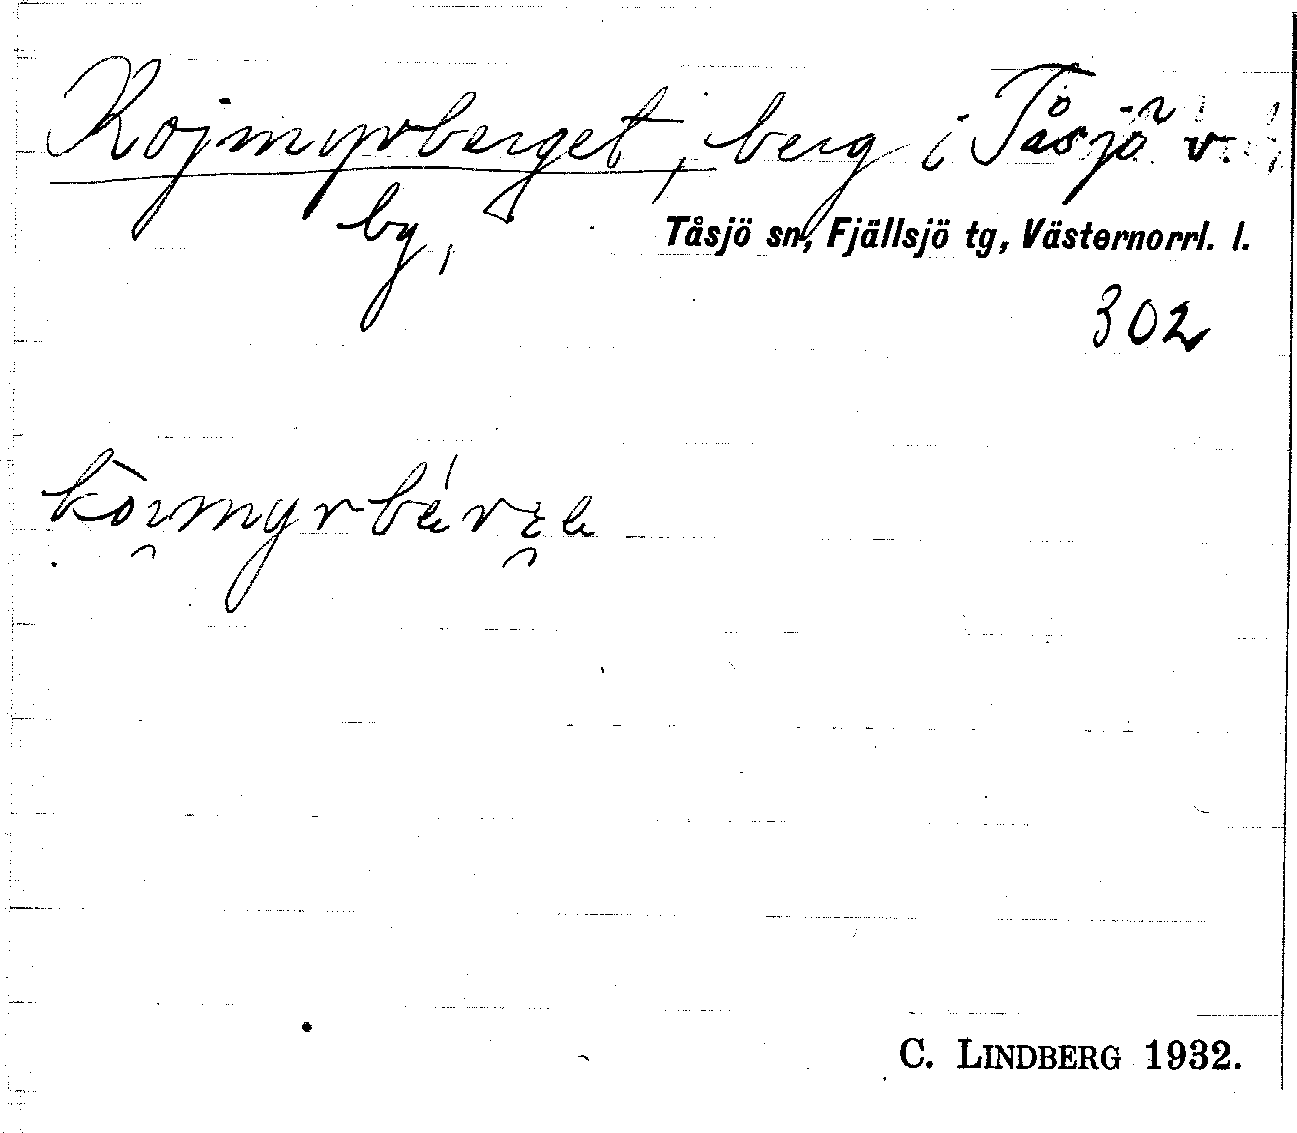 Kojmyrberget, berg i Tåsjö v.
by,
Tåsjö sn, Fjällsjö tg, Västernorrl. l.
302
C. LINDBERG 1932.